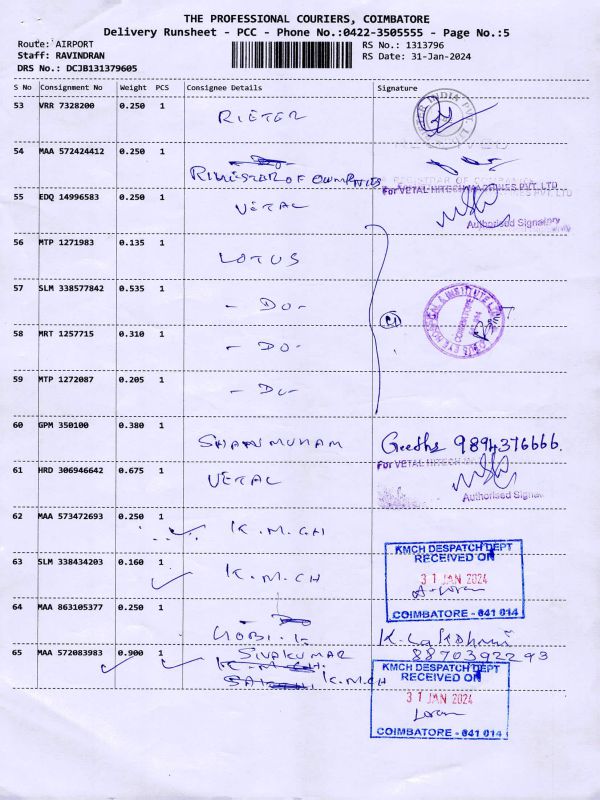 THE PROFESSIONAL COURIERS, COIMBATORE
Delivery Runsheet - PCC - Phone No.:0422-3505555 - Page No.:5
Route: AIRPORT RS No.: 1313796
Staff: RAVINDRAN RS Date: 31-Jan-2024
DRS No.: DCJB131379605
S No Consignment No Weight PCS Consignee Details Signature
53 VRR 7328200 0.250 1 RIETER
54 MAA 572424412 0.250 1 OF
REGISTRAR OF COMPANIES
For VETAL HITECH MACHINES PVT. LTD
55 EDQ 14996583 0.250 1 VETAL
Authorised Signatory
56 MTP 1271983 0.135 1 LOTUS
57 SLM 338577842 0.535 1 - DO -
LOTUS EYE HOSPITAL & INSTITUTE LTD
COIMBATORE
58 MRT 1257715 0.310 1 - DO -
59 MTP 1272087 0.205 1 - DO -
60 GPM 350100 0.380 1 SHANMUHAM Geetha 9894376666.
For VETAL HITECH
61 HRD 306946642 0.675 1 VETAL
Authorised Signat
62 MAA 573472693 0.250 1 K.M.CH
KMCH DESPATCH DEPT
RECEIVED ON
63 SLM 338434203 0.160 1 K.M.CH 31 JAN 2024
COIMBATORE - 641 014
64 MAA 863105377 0.250 1 GOBI.K
65 MAA 572083983 0.900 1 SIVAKUMAR 8870392293
K.M.CH
KMCH DESPATCH DEPT
RECEIVED ON
31 JAN 2024
COIMBATORE - 641 014